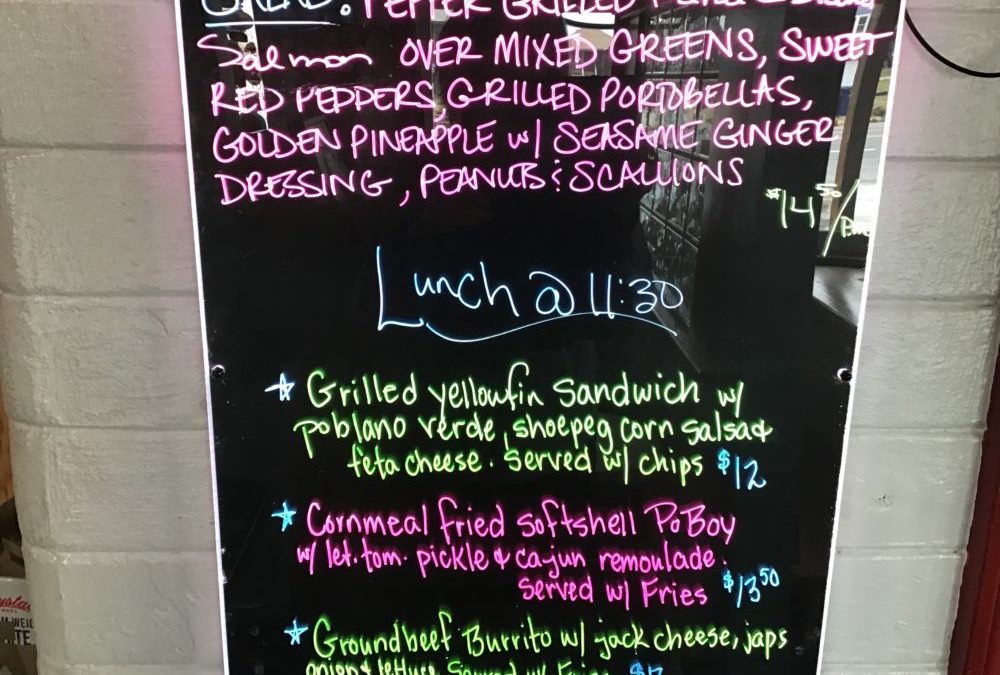 SALAD: PEPPER GRILLED
Salmon OVER MIXED GREENS, SWEET
RED PEPPERS, GRILLED PORTOBELLAS,
GOLDEN PINEAPPLE w/ SEASAME GINGER
DRESSING, PEANUTS & SCALLIONS
$14 50/
Lunch @ 11:30
☆ Grilled yellowfin sandwich w/
poblano verde, shoepeg corn salsa &
feta cheese. Served w/ chips $12
☆ Cornmeal fried softshell PoBoy
w/ let. tom. pickle & cajun remoulade.
Served w/ Fries $13 50
☆ Groundbeef Burrito w/ jack cheese, japs
onion & lettuce Served w/ Fries